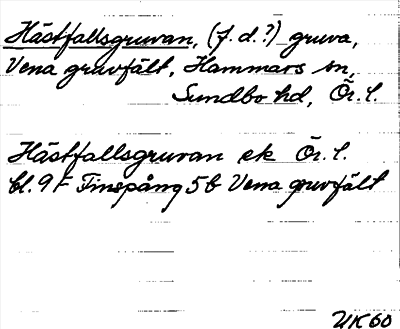 Hästfallsgruvan, (f.d.?) gruva,
Vena gruvfält, Hammars sn,
Sundbo hd, Ör. l.
Hästfallsgruvan ek Ör. l.
bl. 9 F Finspång 5 b Vena gruvfält
UK60